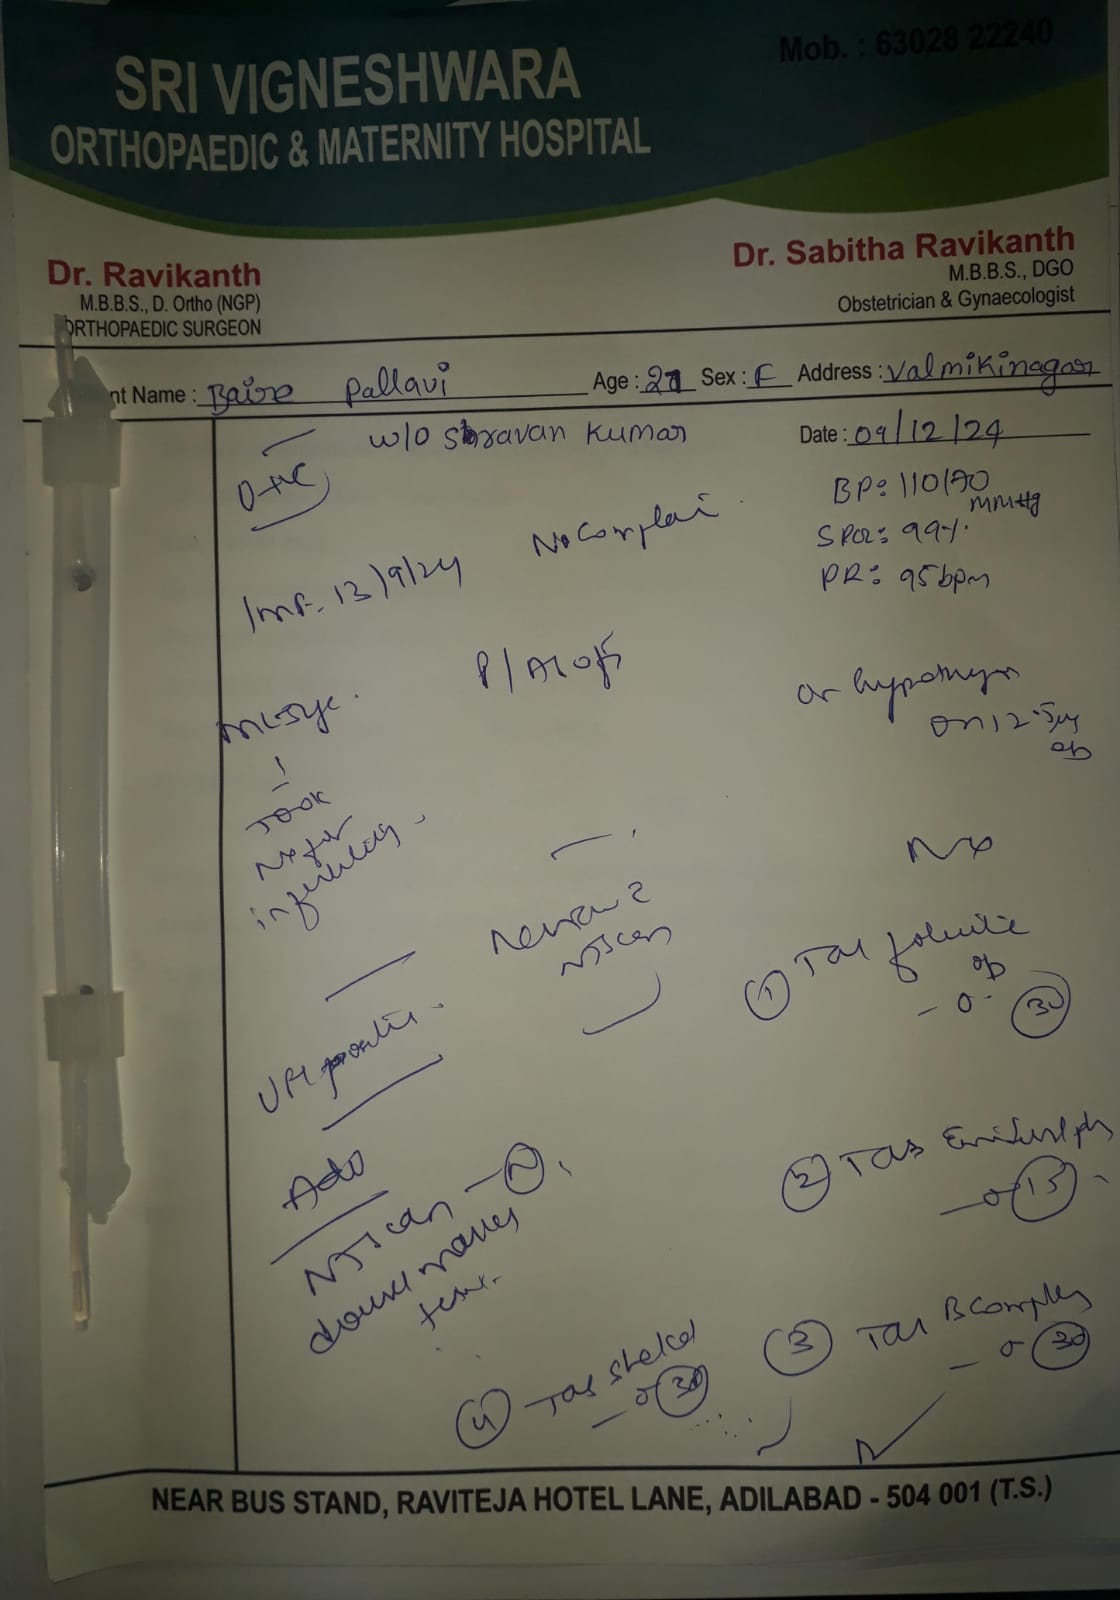 Mob. : 63028 22240
SRI VIGNESHWARA
ORTHOPAEDIC & MATERNITY HOSPITAL
Dr. Ravikanth
M.B.B.S., D. Ortho (NGP)
ORTHOPAEDIC SURGEON
Dr. Sabitha Ravikanth
M.B.B.S., DGO
Obstetrician & Gynaecologist
nt Name : Pallavi Age : 27 Sex : F Address : Valmikinagar
w/o Shravan Kumar
Date : 09/12/24
O+ve
BP: 110/70
MMHg
SPO2: 99%.
PR: 95bpm
13/9/24
No Complai
P/A
on 12.5
Took
for
infertility
Review
NT scan
UPT positive
Adv
NT scan - N
double marker
test
① Tab
- 0 - 30
② Tab
- 0 15
③ Tab B Complex
- 0 30
④ Tab Shelcal
- 0 30
NEAR BUS STAND, RAVITEJA HOTEL LANE, ADILABAD - 504 001 (T.S.)